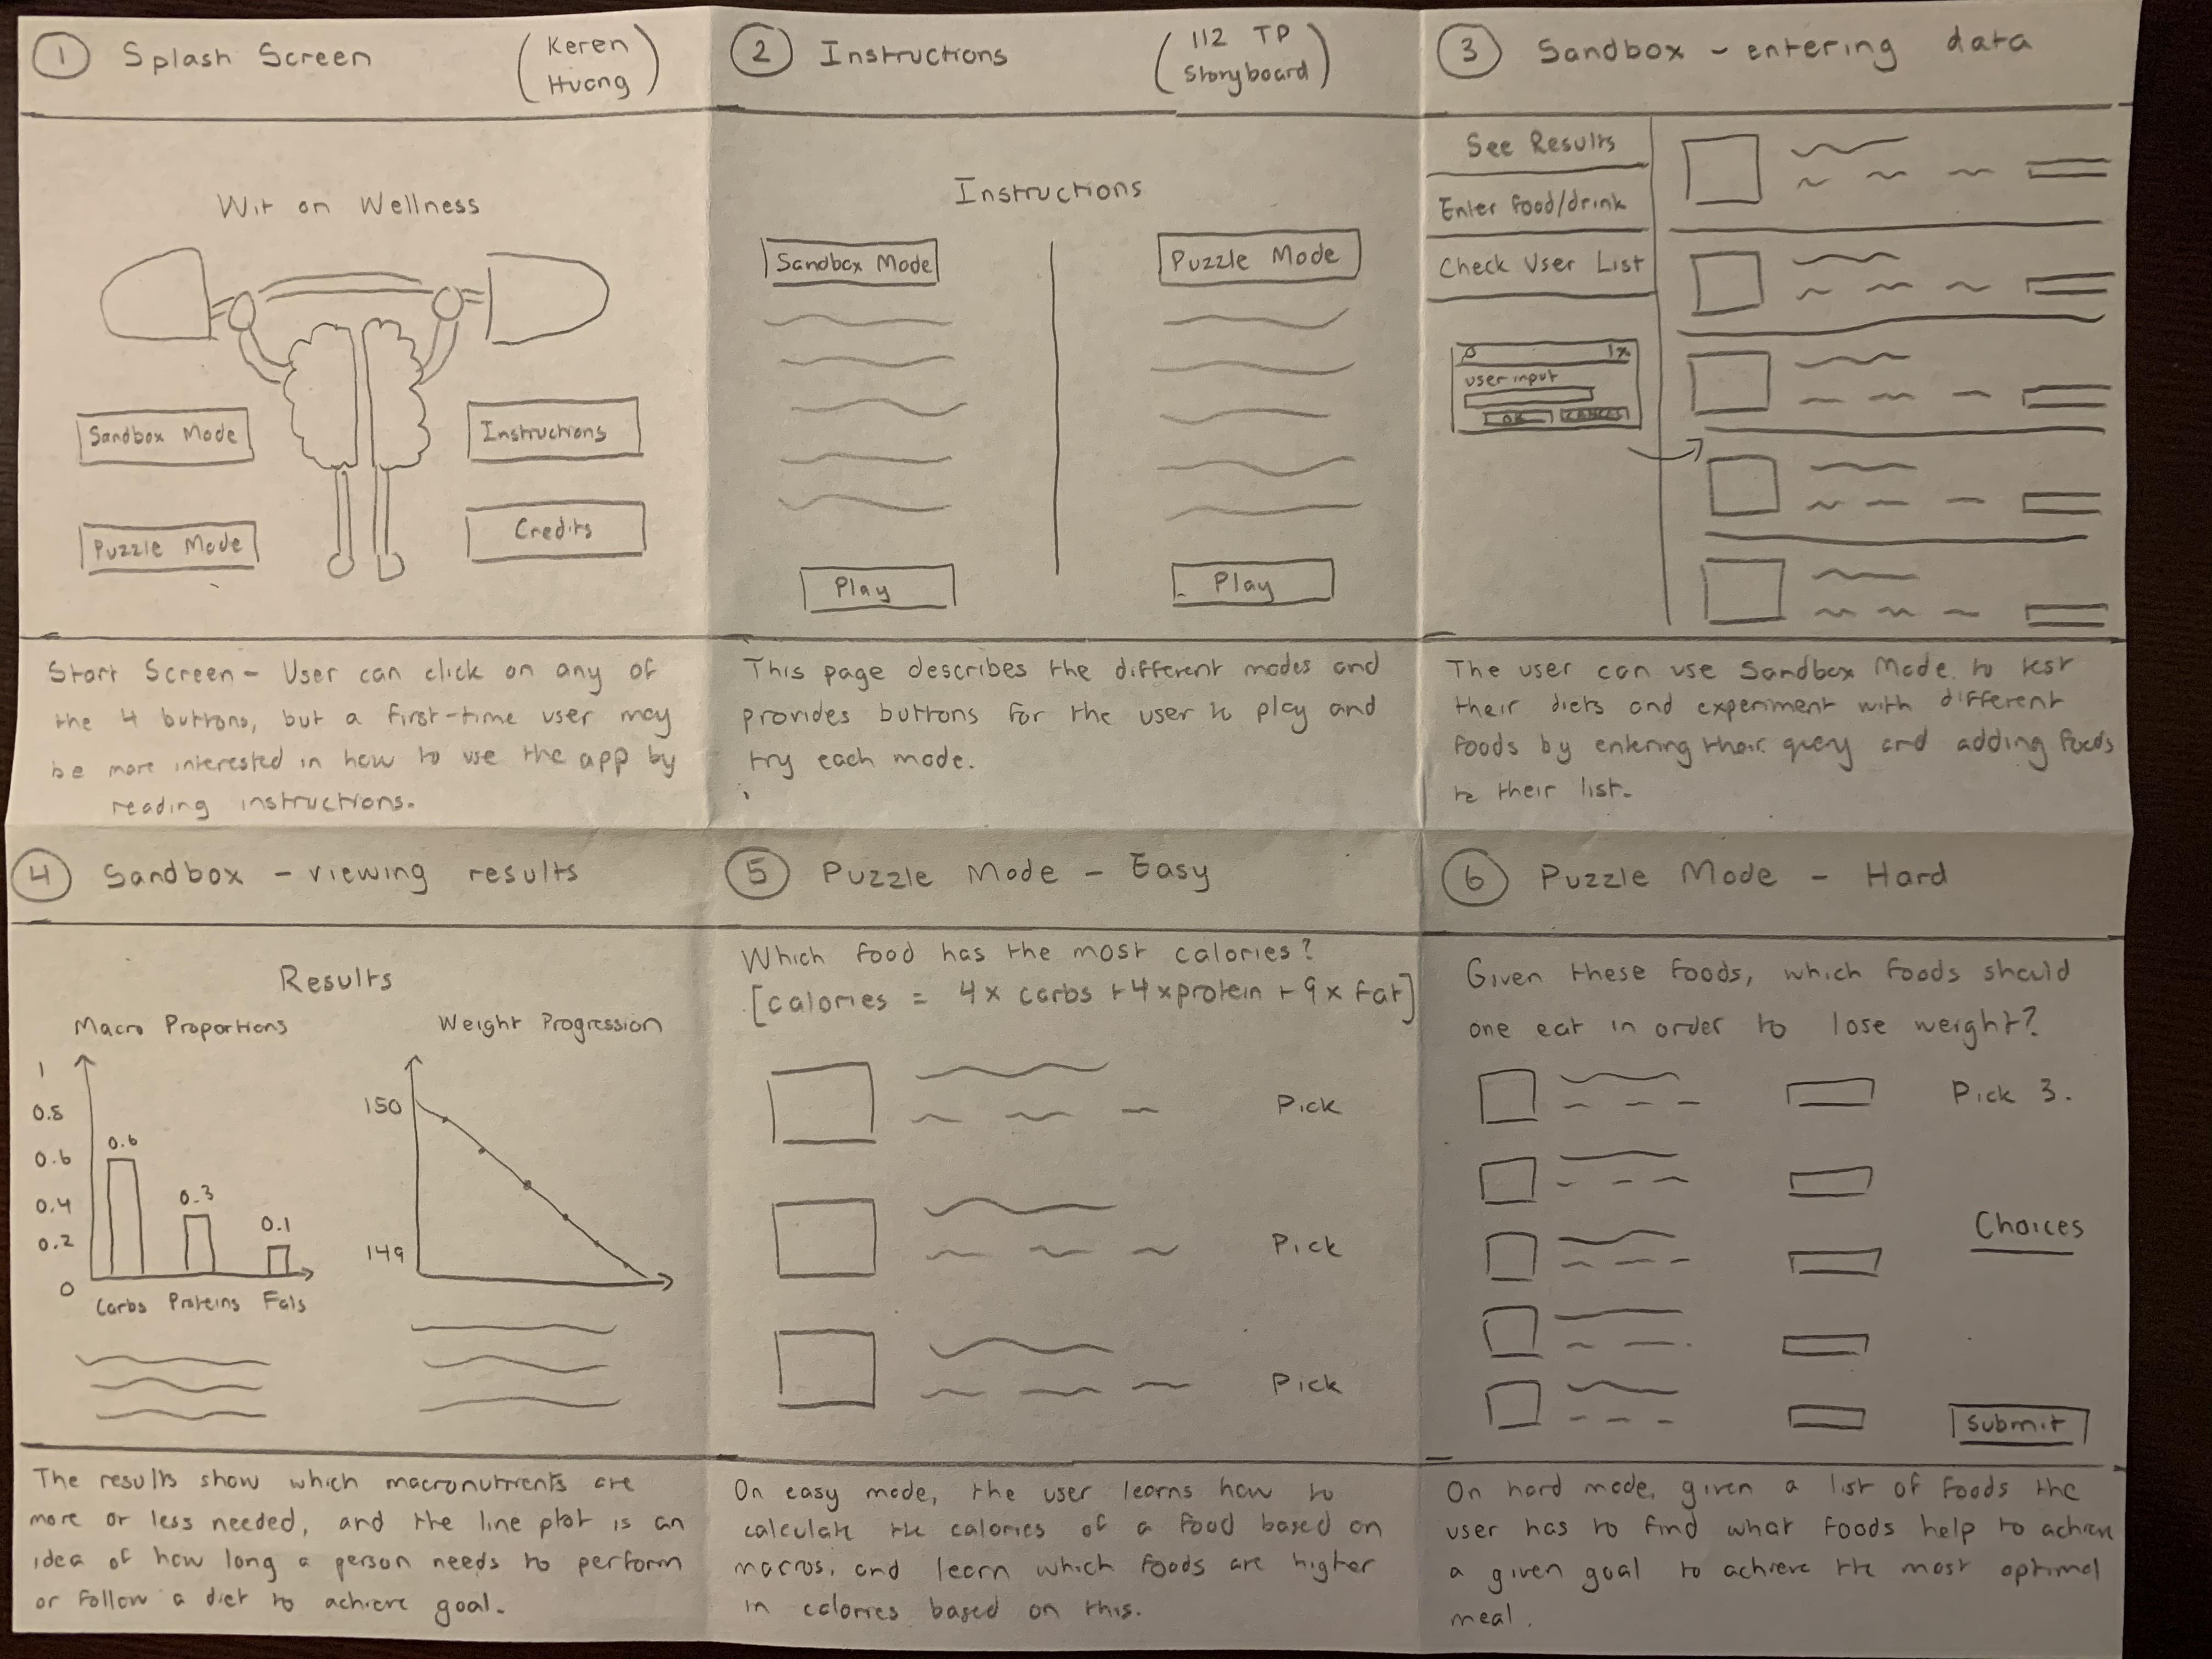 1 Splash Screen (Keren
Huang)
Wit on Wellness
Sandbox Mode
Instructions
Puzzle Mode
Credits
Start Screen - User can click on any of
the 4 buttons, but a first-time user may
be more interested in how to use the app by
reading instructions.
2 Instructions (112 TP
Storyboard)
Instructions
Sandbox Mode
Puzzle Mode
Play
Play
This page describes the different modes and
provides buttons for the user to play and
try each mode.
3 Sandbox - entering data
See Results
Enter food/drink
Check User List
user input
OK CANCEL
The user can use Sandbox Mode to test
their diets and experiment with different
foods by entering their query and adding foods
to their list.
4 Sandbox - viewing results
Results
Macro Proportions
1
0.8
0.6
0.4
0.2
0
0.6
0.3
0.1
Carbs Proteins Fats
Weight Progression
150
149
The results show which macronutrients are
more or less needed, and the line plot is an
idea of how long a person needs to perform
or follow a diet to achieve goal.
5 Puzzle Mode - Easy
Which food has the most calories?
[calories = 4x carbs +4xprotein +9x fat]
Pick
Pick
Pick
On easy mode, the user learns how to
calculate the calories of a food based on
macros, and learn which foods are higher
in calories based on this.
6 Puzzle Mode - Hard
Given these foods, which foods should
one eat in order to lose weight?
Pick 3.
Choices
Submit
On hard mode, given a list of foods the
user has to find what foods help to achieve
a given goal to achieve the most optimal
meal.